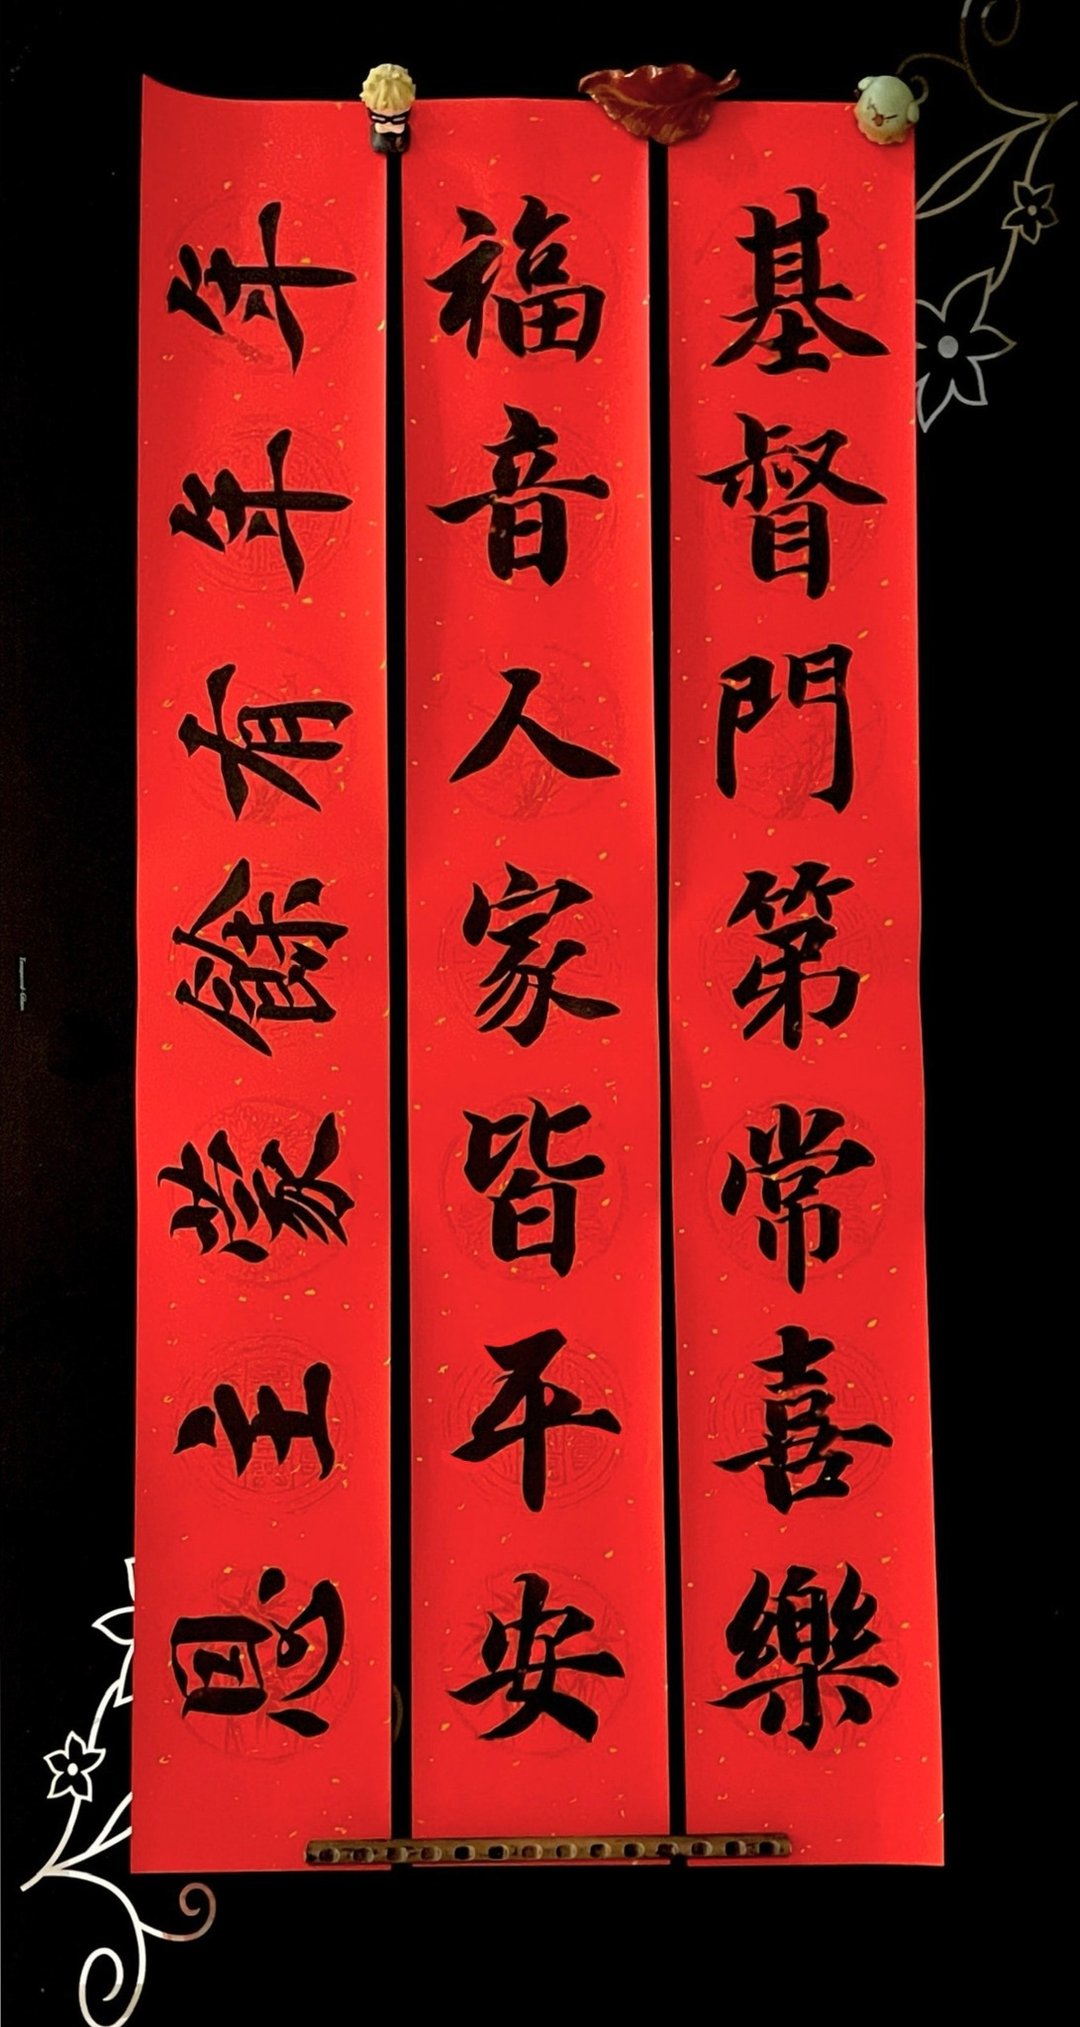 基督門第常喜樂
福音人家皆平安
年年有餘蒙主恩